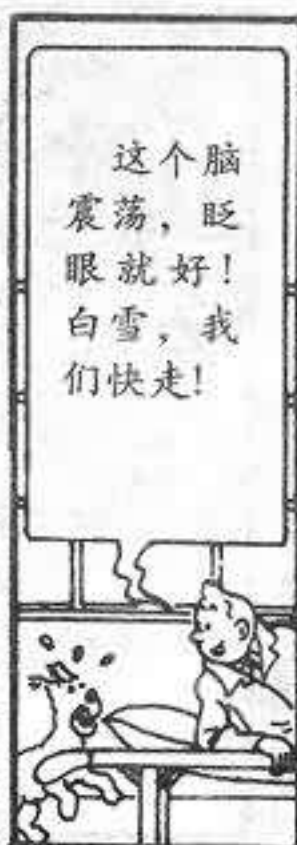 这个脑
震荡，眨
眼就好！
白雪，我
们快走！